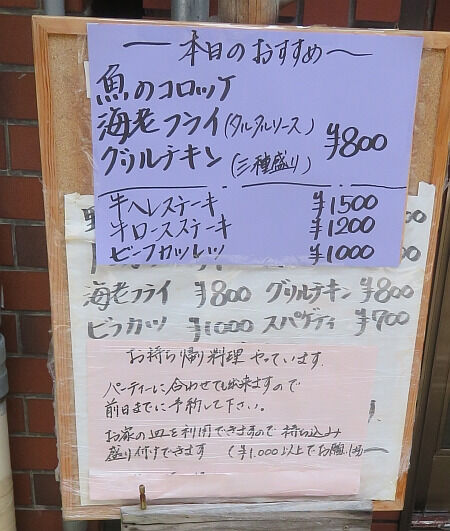 本日のおすすめ
魚のコロッケ
海老フライ(タルタルソース)
グリルチキン(三種盛り) ¥800
牛ヘレステーキ ¥1500
牛ロースステーキ ¥1200
ビーフカツレツ ¥1000
海老フライ ¥800 グリルチキン ¥800
ビフカツ ¥1000 スパゲティ ¥700
お持ち帰り料理 やっています.
パーティーに合わせても出来ますので
前日までに予約して下さい。
お家の皿を利用できますので 持ち込み
盛り付けできます (¥1.000以上でお願い